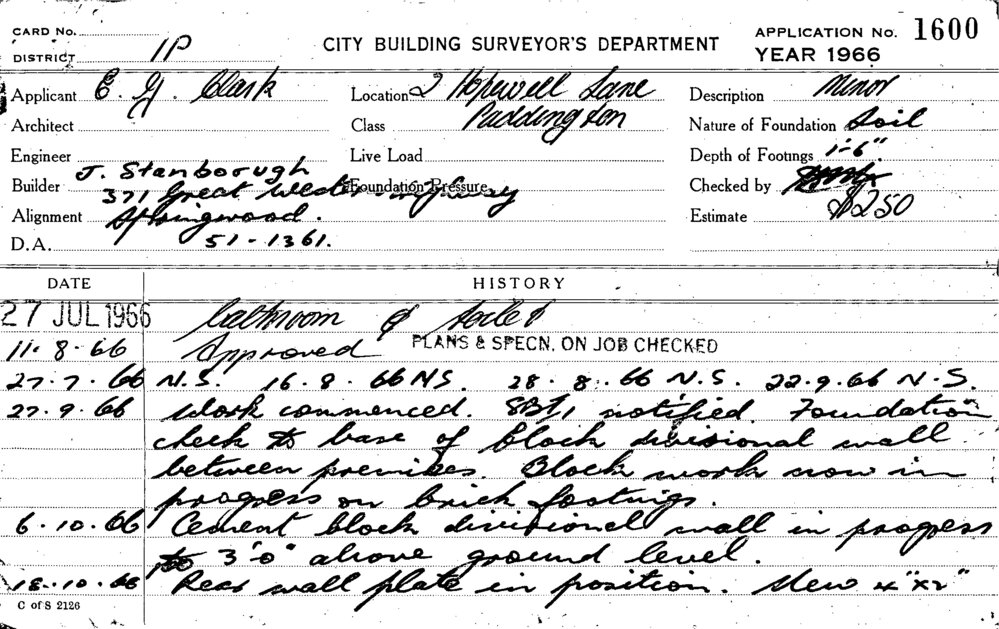 CARD No.
DISTRICT 1P
CITY BUILDING SURVEYOR'S DEPARTMENT
APPLICATION No. 1600
YEAR 1966
Applicant E. G. Clark
Location 2 Hopewell Lane
Paddington
Description Minor
Architect
Class
Nature of Foundation Soil
Engineer
Live Load
Depth of Footings 1'-6"
Builder J. Stanborough
371 Great Western Highway
Foundation Pressure
Checked by
Alignment Springwood.
Estimate $250
D.A. 51-1361.
DATE HISTORY
27 JUL 1966 Bathroom & toilet
11.8.66 Approved PLANS & SPECN. ON JOB CHECKED
27.7.66 N.S. 16.8.66 NS. 28.8.66 N.S. 22.9.66 N.S.
27.9.66 Work commenced. notified. Foundation
check to base of block divisional wall
between premises. Block work now in
progress on brick footings.
6.10.66 Cement block divisional wall in progress
to 3'0" above ground level.
18.10.66 Rear wall plate in position. New 4"x2"
C of S 2126